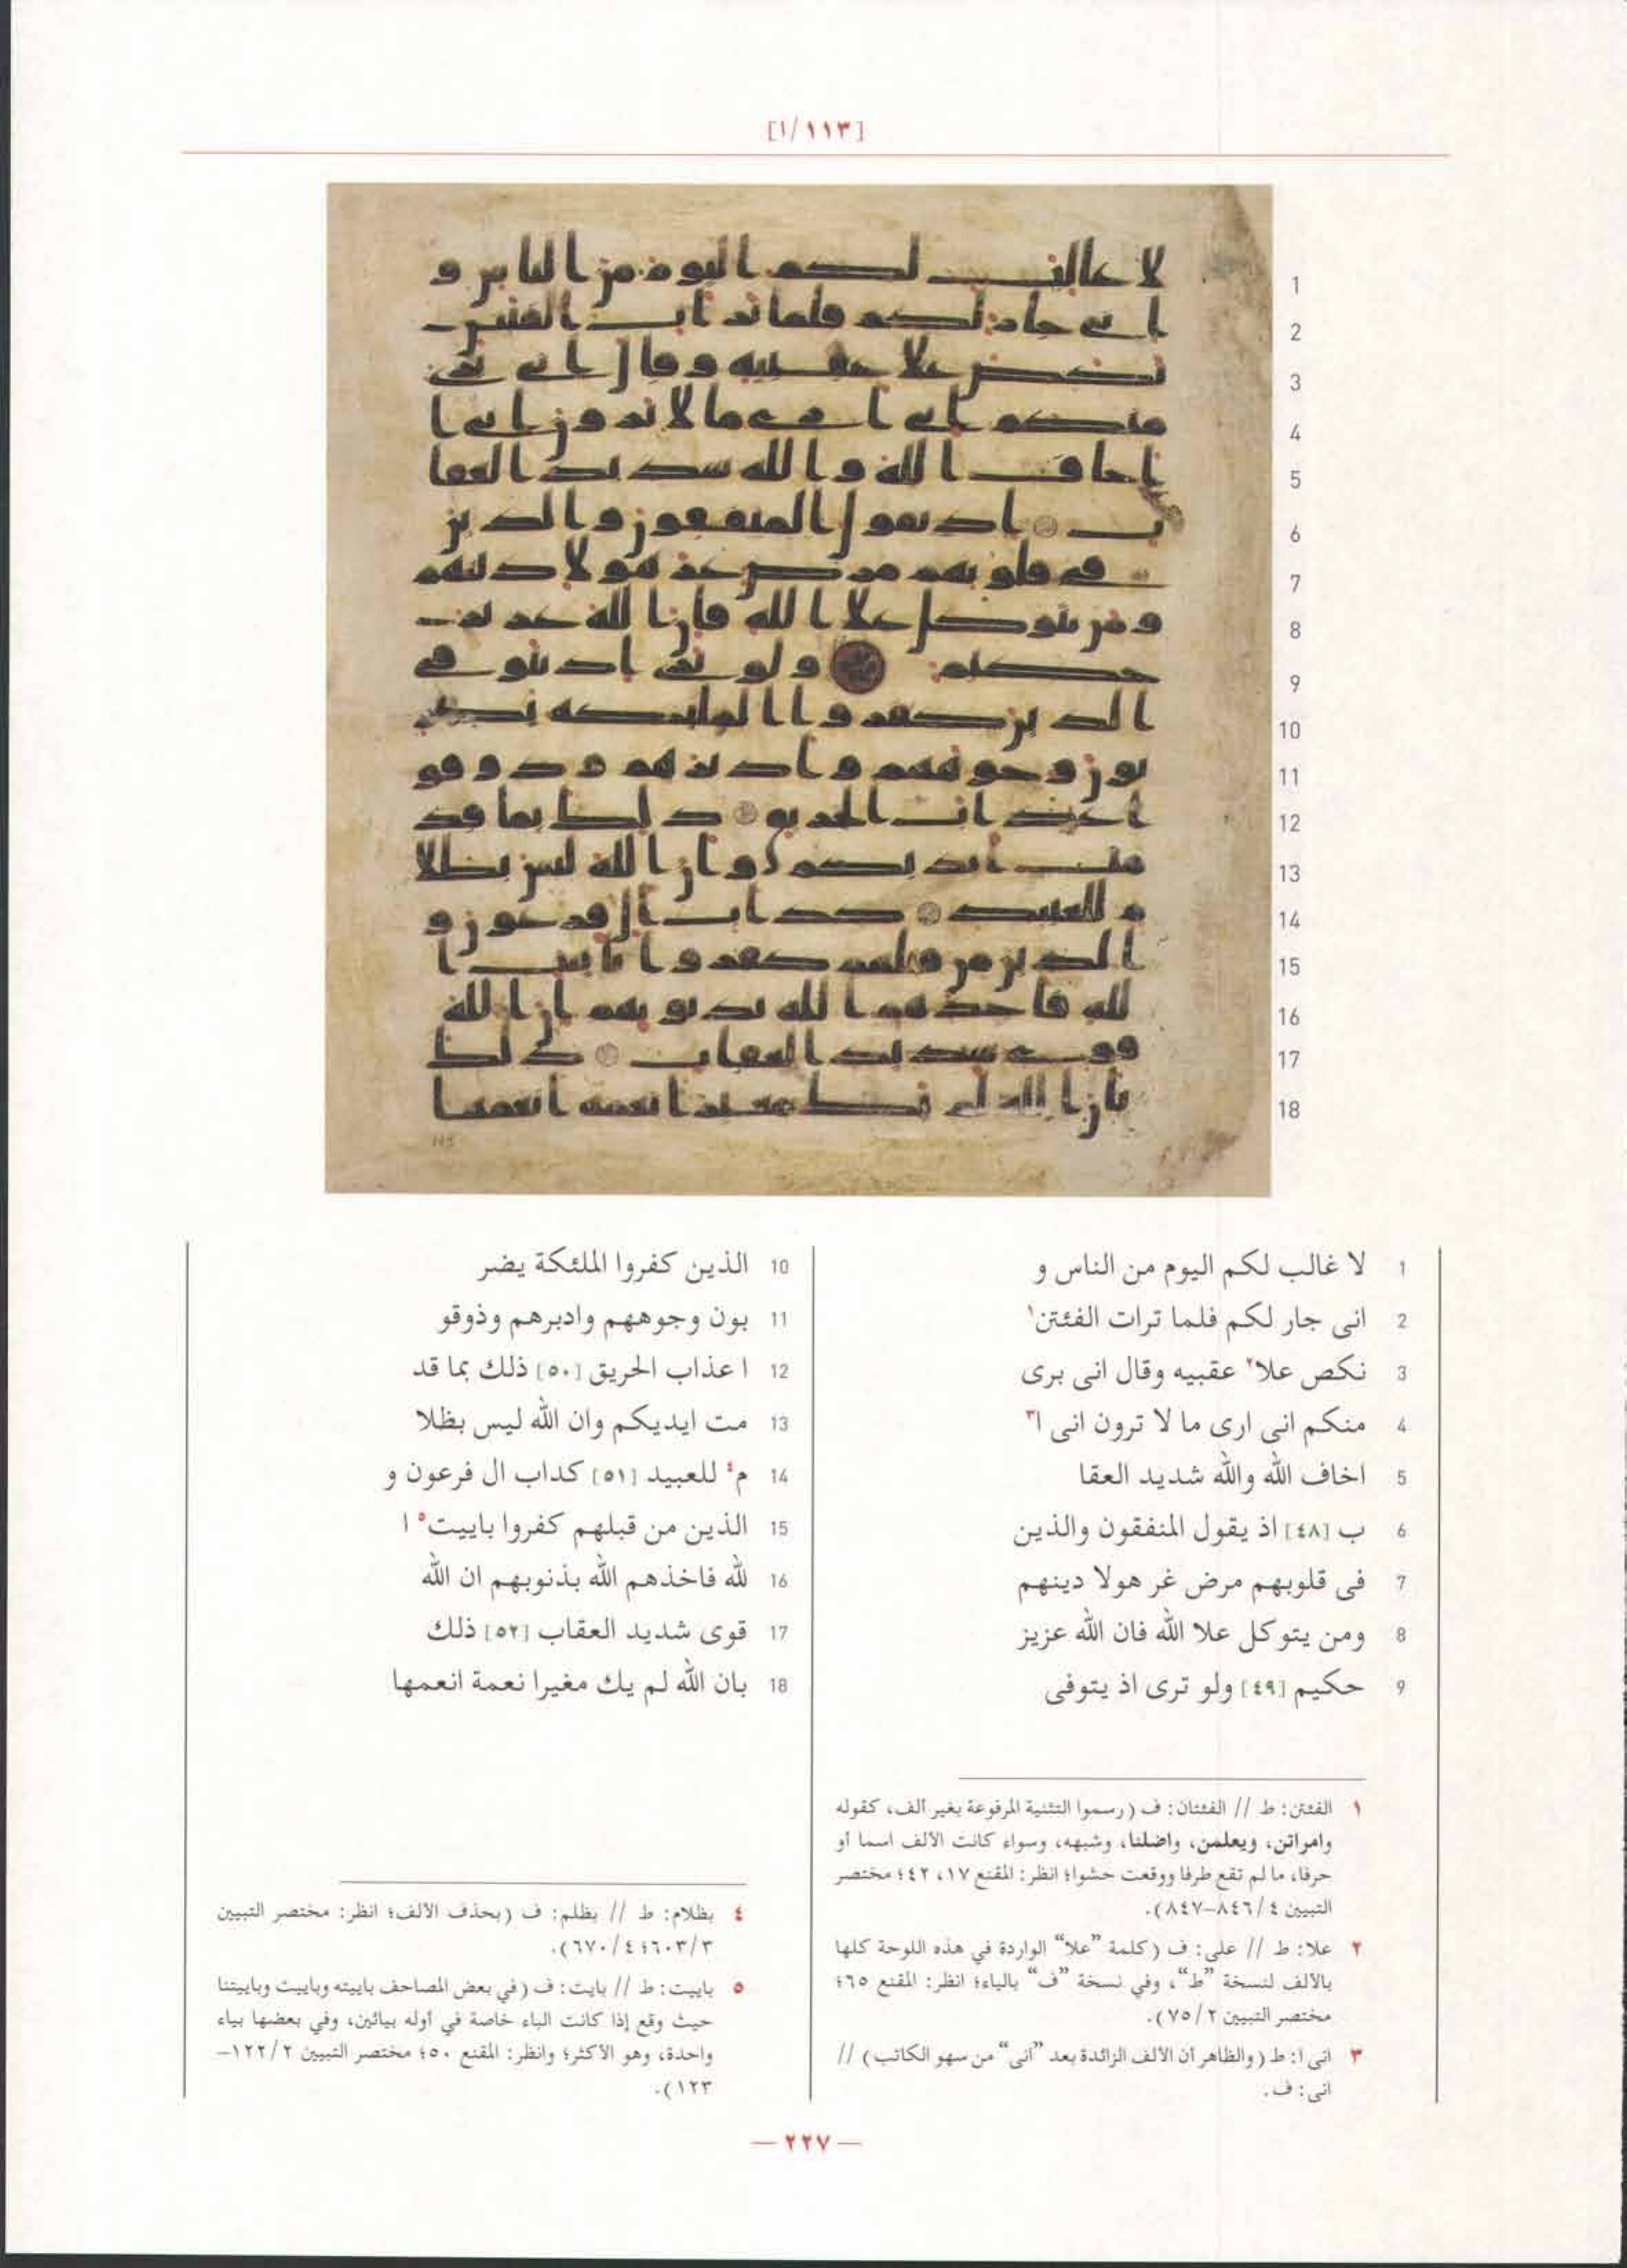 [١/١١٣]
1 لا غالب لكم اليوم من الناس و
2 انى جار لكم فلما ترات الفئتن١
3 نكص علا٢ عقبيه وقال انى برى
4 منكم انى ارى ما لا ترون انى ا٣
5 اخاف الله والله شديد العقا
6 ب [٤٨] اذ يقول المنفقون والذين
7 فى قلوبهم مرض غر هولا دينهم
8 ومن يتوكل علا الله فان الله عزيز
9 حكيم [٤٩] ولو ترى اذ يتوفى
10 الذين كفروا الملئكة يضر
11 بون وجوههم وادبرهم وذوقو
12 ا عذاب الحريق [٥٠] ذلك بما قد
13 مت ايديكم وان الله ليس بظلا
14 م٤ للعبيد [٥١] كداب ال فرعون و
15 الذين من قبلهم كفروا باييت٥ ا
16 لله فاخذهم الله بذنوبهم ان الله
17 قوى شديد العقاب [٥٢] ذلك
18 بان الله لم يك مغيرا نعمة انعمها
١ الفئتن: ط // الفئتان: ف (رسموا التثنية المرفوعة بغير ألف، كقوله
وامراتن، ويعلمن، واضلنا، وشبهه، وسواء كانت الألف اسما أو
حرفا، ما لم تقع طرفا ووقعت حشوا؛ انظر: المقنع ١٧، ٤٢؛ مختصر
التبيين ٤/ ٨٤٦–٨٤٧).
٢ علا: ط // على: ف (كلمة ”علا“ الواردة في هذه اللوحة كلها
بالألف لنسخة ”ط“، وفي نسخة ”ف“ بالياء؛ انظر: المقنع ٦٥؛
مختصر التبيين ٢/ ٧٥).
٣ انى ا: ط (والظاهر أن الألف الزائدة بعد ”انى“ من سهو الكاتب) //
انى: ف.
٤ بظلام: ط // بظلم: ف (بحذف الألف؛ انظر: مختصر التبيين
٣/ ٦٠٣؛ ٤/ ٦٧٠).
٥ باييت: ط // بايت: ف (في بعض المصاحف باييته وباييت وباييتنا
حيث وقع إذا كانت الباء خاصة في أوله بيائين، وفي بعضها بياء
واحدة، وهو الأكثر؛ وانظر: المقنع ٥٠؛ مختصر التبيين ٢/ ١٢٢–
١٢٣).
— ٢٢٧ —